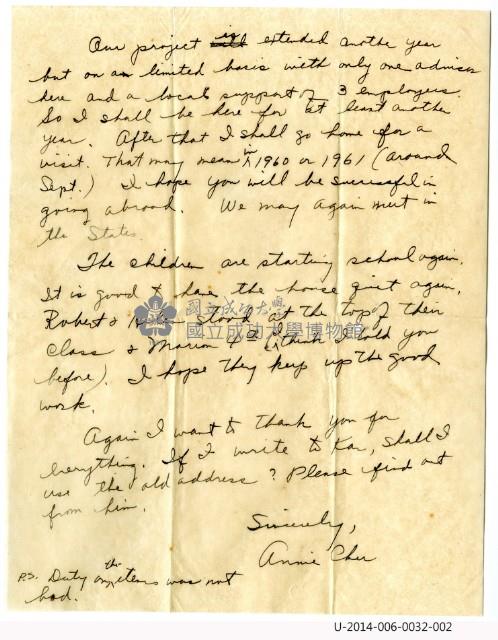 Our project is extended anothe year
but on a limited basis with only one advisor
here and a local support of 3 employees.
So I shall be here for at least another
year. After that I shall go home for a
visit. That may mean in 1960 or 1961 (around
Sept.) I hope you will be successful in
going abroad. We may again meet in
the States.
The children are starting school again.
It is good to have the house quiet again.
Robert & at the top of their
class & Marion (think I told you
before). I hope they keep up the good
work.
Again I want to thank you for
everything. If I write to Kao, shall I
use the old address? Please find out
from him.
Sincerely,
Annie Cheu
P.S. Duty on the items was not
bad.
國立成功大學
國立成功大學博物館
U-2014-006-0032-002